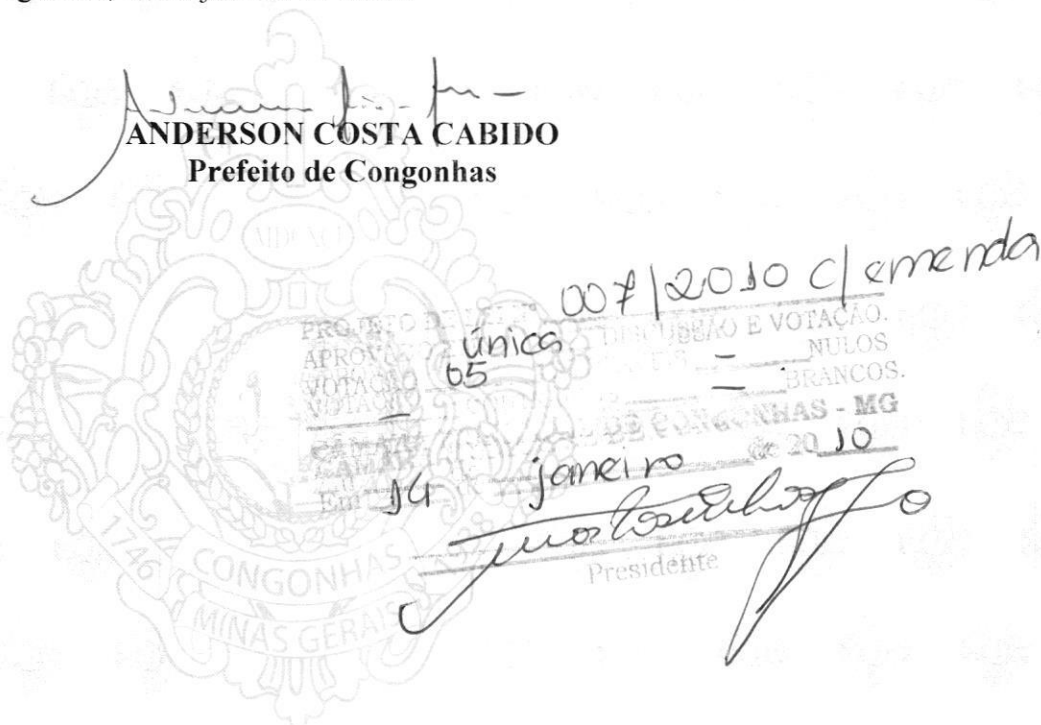 ANDERSON COSTA CABIDO
Prefeito de Congonhas
007/2010 c/ emenda
PROJETO DE
única DISCUSSÃO E VOTAÇÃO.
VOTAÇÃO 05 — NULOS
— BRANCOS.
DE CONGONHAS - MG
Em 14 janeiro de 2010
Presidente
1746
CONGONHAS
MINAS GERAIS